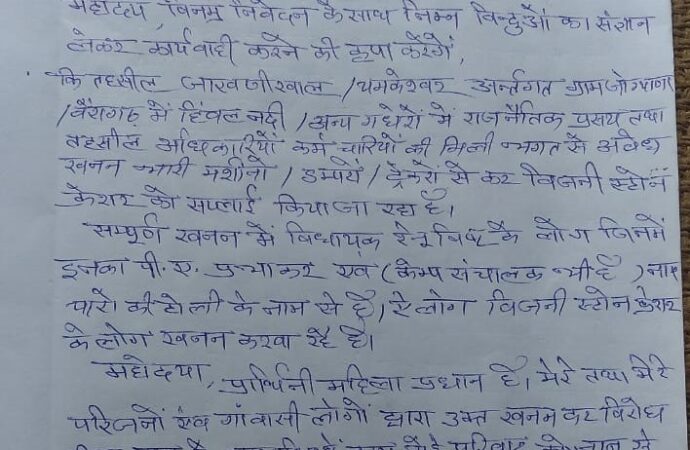 महोदया, विनम्र निवेदन के साथ निम्न बिन्दुओं का संज्ञान
लेकर कार्यवाही करने की कृपा करेंगे,
कि तहसील जाखणीखाल / यमकेश्वर अर्न्तगत ग्राम जोग्याणा
/ बैरागढ़ में हिंवल नदी / अन्य गधेरों में राजनैतिक प्रसय तथा
तहसील अधिकारियों कर्मचारियों की मिली भगत से अवैध
खनन भारी मशीनों / डम्परों / ट्रेक्टरों से कर विजनी स्टोन
क्रेशर को सप्लाई किया जा रहा है।
सम्पूर्ण खनन में विधायक रेनू विष्ट के लोग जिनमें
इनका पी. ए. एवं (केम्प संचालक भी है)
की टोली के नाम से है, ऐ लोग विजनी स्टोन क्रेशर
के लोग खनन करवा रहे है।
महोदया, प्रार्थिनी महिला प्रधान है। मेरे तथा मेरे
परिजनों एंव गाँवासी लोगों द्वारा उक्त खनन का विरोध
परिवार को जान से